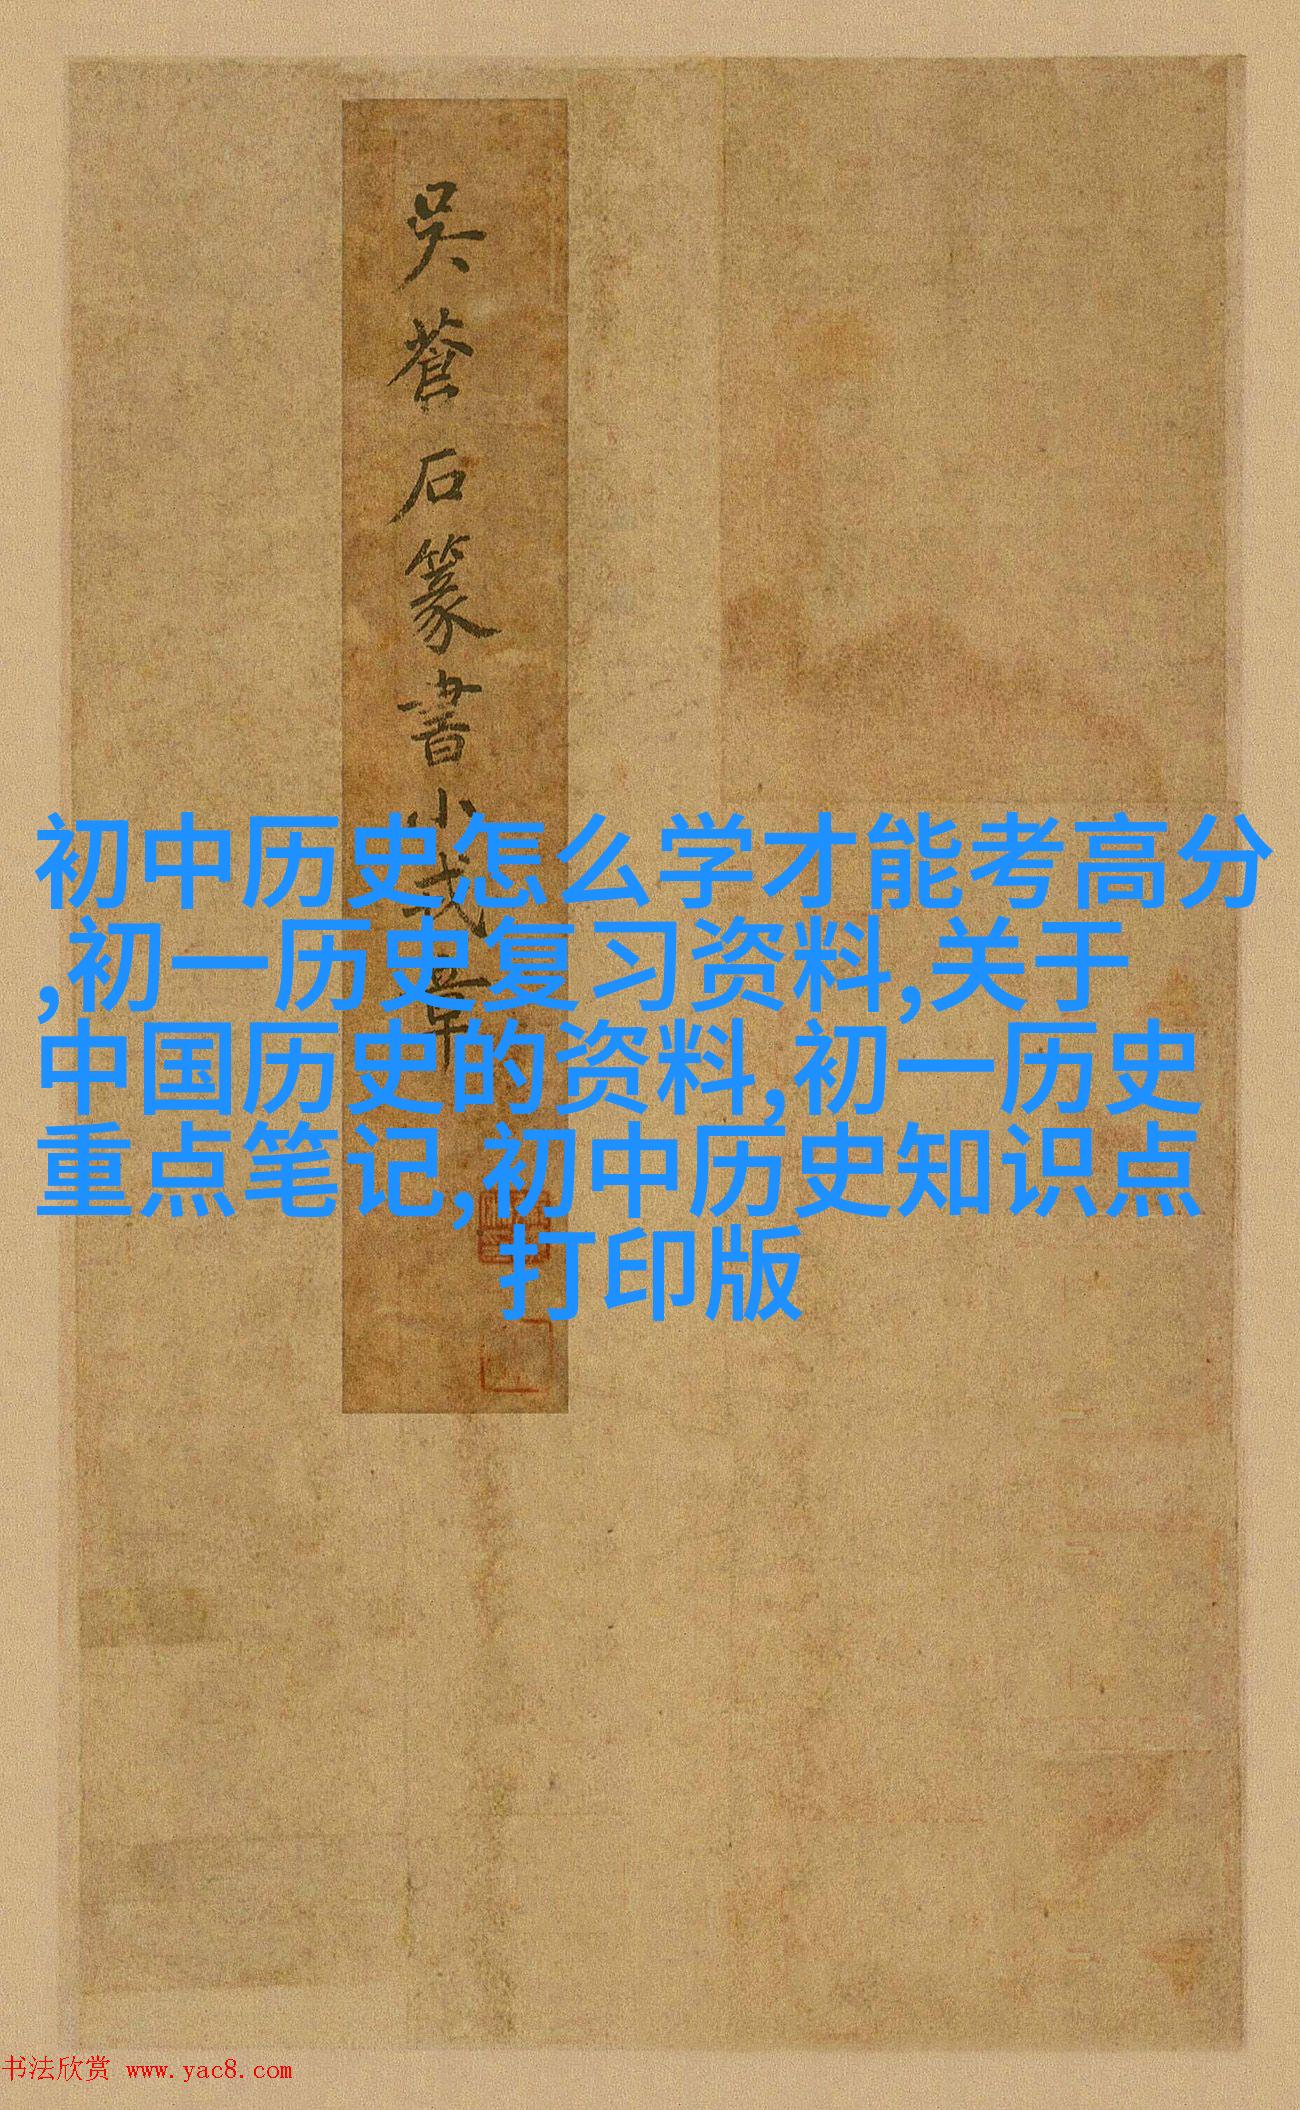 吳蒼石篆書小戎章
初中历史怎么学才能考高分
,初一历史复习资料,关于
中国历史的资料,初一历史
重点笔记,初中历史知识点
打印版
书法欣赏 www.yac8.com